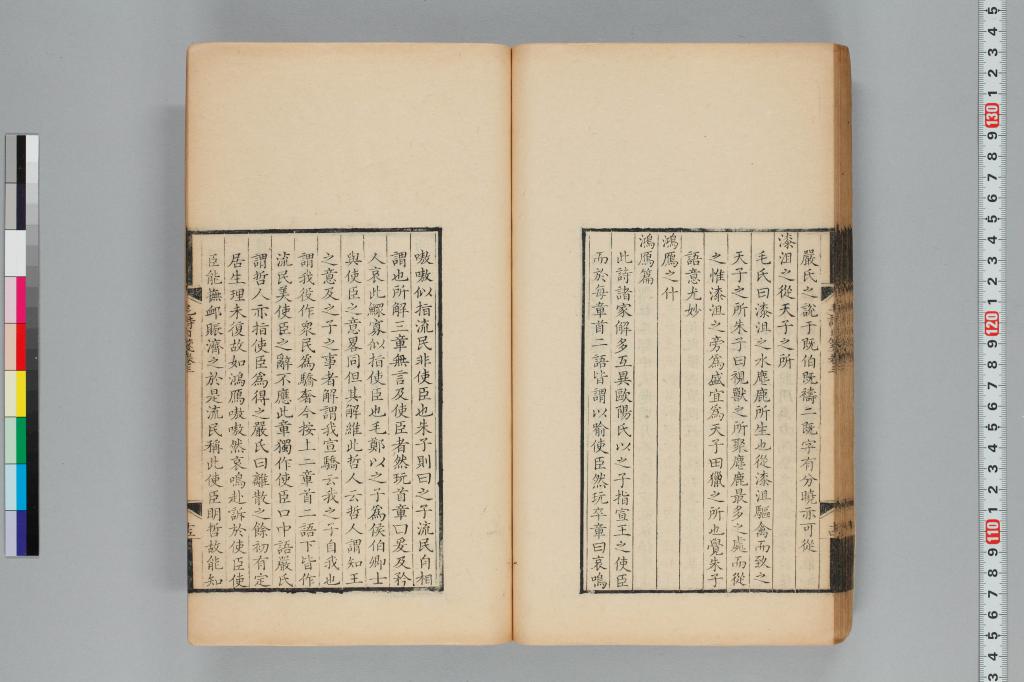 嚴氏之說于既伯既禱二既字有分曉亦可從
漆沮之從天子之所
毛氏曰漆沮之水麀鹿所生也從漆沮驅禽而致之
天子之所朱子曰視獸之所聚麀鹿最多之處而從
之惟漆沮之旁為盛宜為天子田獵之所也覺朱子
語意尤妙
鴻鴈之什
鴻鴈篇
此詩諸家解多互異歐陽氏以之子指宣王之使臣
而於每章首二語皆謂以喻使臣然玩卒章曰哀鳴
嗷嗷似指流民非使臣也朱子則曰之子流民自相
謂也所解三章無言及使臣者然玩首章曰爰及矜
人哀此鰥寡似指使臣也毛鄭以之子為侯伯卿士
與使臣之意畧同但其解維此哲人云哲人謂知王
之意及之子之事者解謂我宣驕云我之子自我也
謂我役作衆民為驕奢今按上二章首二語下皆作
流民美使臣之辭不應此章獨作使臣口中語嚴氏
謂哲人亦指使臣為得之嚴氏曰離散之餘初有定
居生理未復故如鴻鴈嗷嗷然哀鳴赴訴於使臣使
臣能撫邺賑濟之於是流民稱此使臣明哲故能知